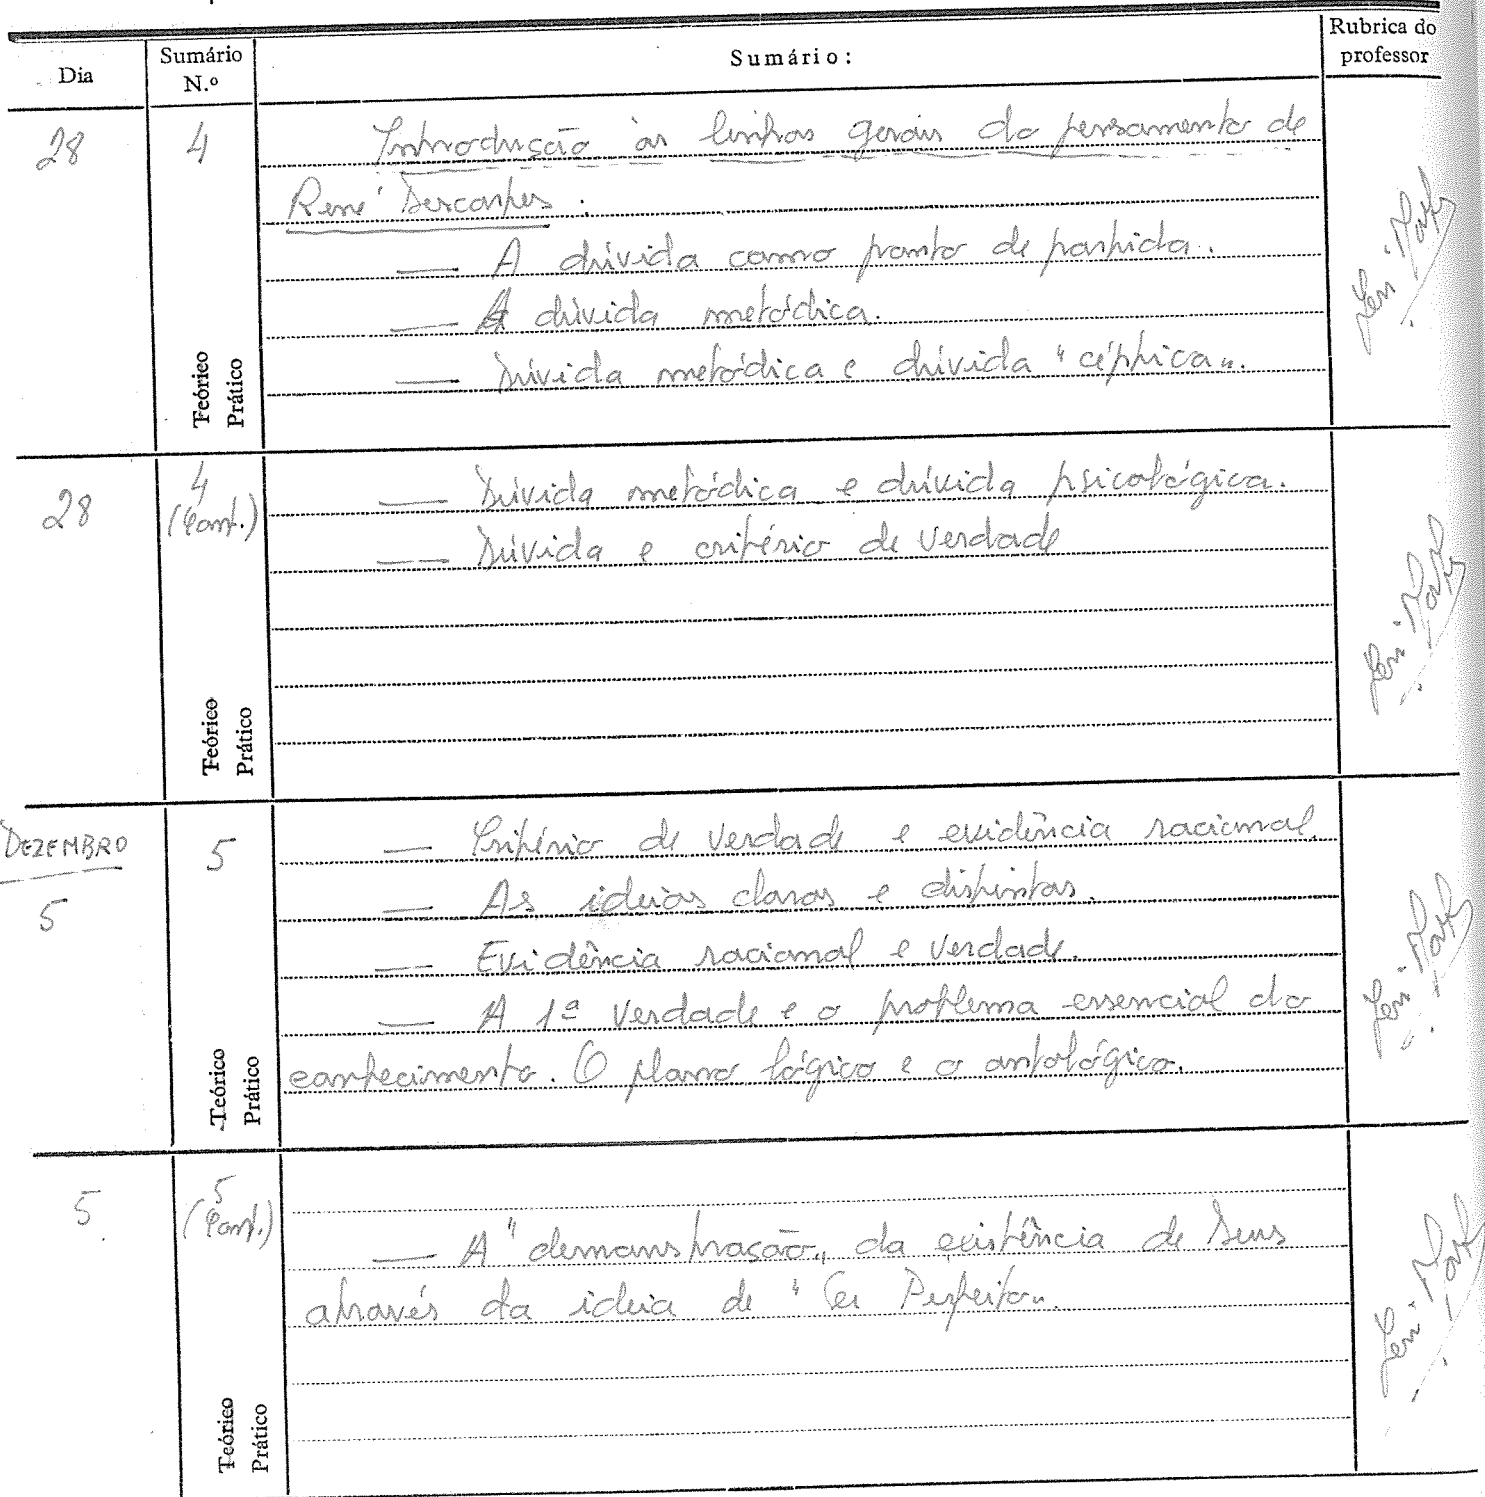 Dia
Sumário
N.º
Sumário:
Rubrica do
professor
28
4
Introdução às linhas gerais do pensamento de
René Descartes.
— A dúvida como ponto de partida.
— A dúvida metódica.
— Dúvida metódica e dúvida "céptica".
Teórico
Prático
28
4
(Cont.)
— Dúvida metódica e dúvida psicológica.
— Dúvida e critério de verdade
Teórico
Prático
DEZEMBRO
5
5
— Critério de verdade e evidência racional.
— As ideias claras e distintas.
— Evidência racional e verdade.
— A 1ª verdade e o problema essencial do
conhecimento. O plano lógico e o ontológico.
Teórico
Prático
5
5
(Cont.)
— A "demonstração" da existência de Deus
através da ideia de "Ser Perfeito".
Teórico
Prático